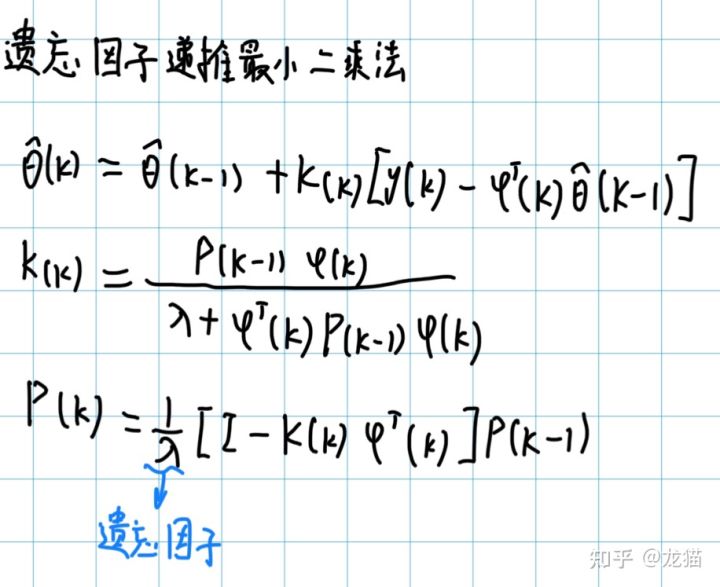 遗忘因子递推最小二乘法
θ̂(k) = θ̂(k-1) + K(k)[y(k) - φᵀ(k)θ̂(k-1)]
K(k) = P(k-1) φ(k) / λ + φᵀ(k) P(k-1) φ(k)
P(k) = 1/λ [I - K(k) φᵀ(k)] P(k-1)
遗忘因子
知乎 @龙猫